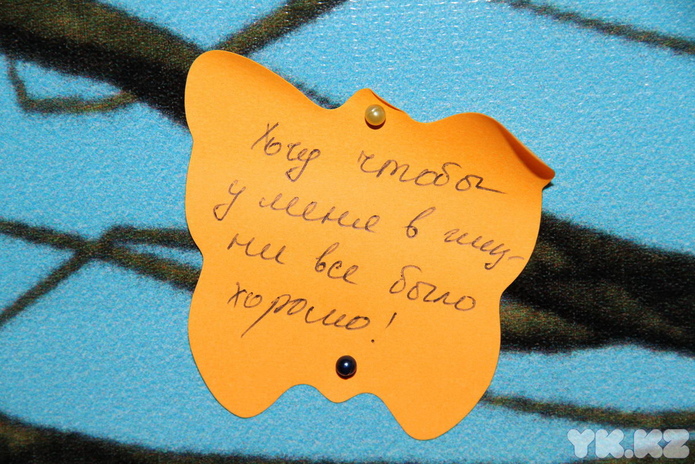 Хочу чтобы
у меня в жиз-
ни все было
хорошо!
YK.KZ